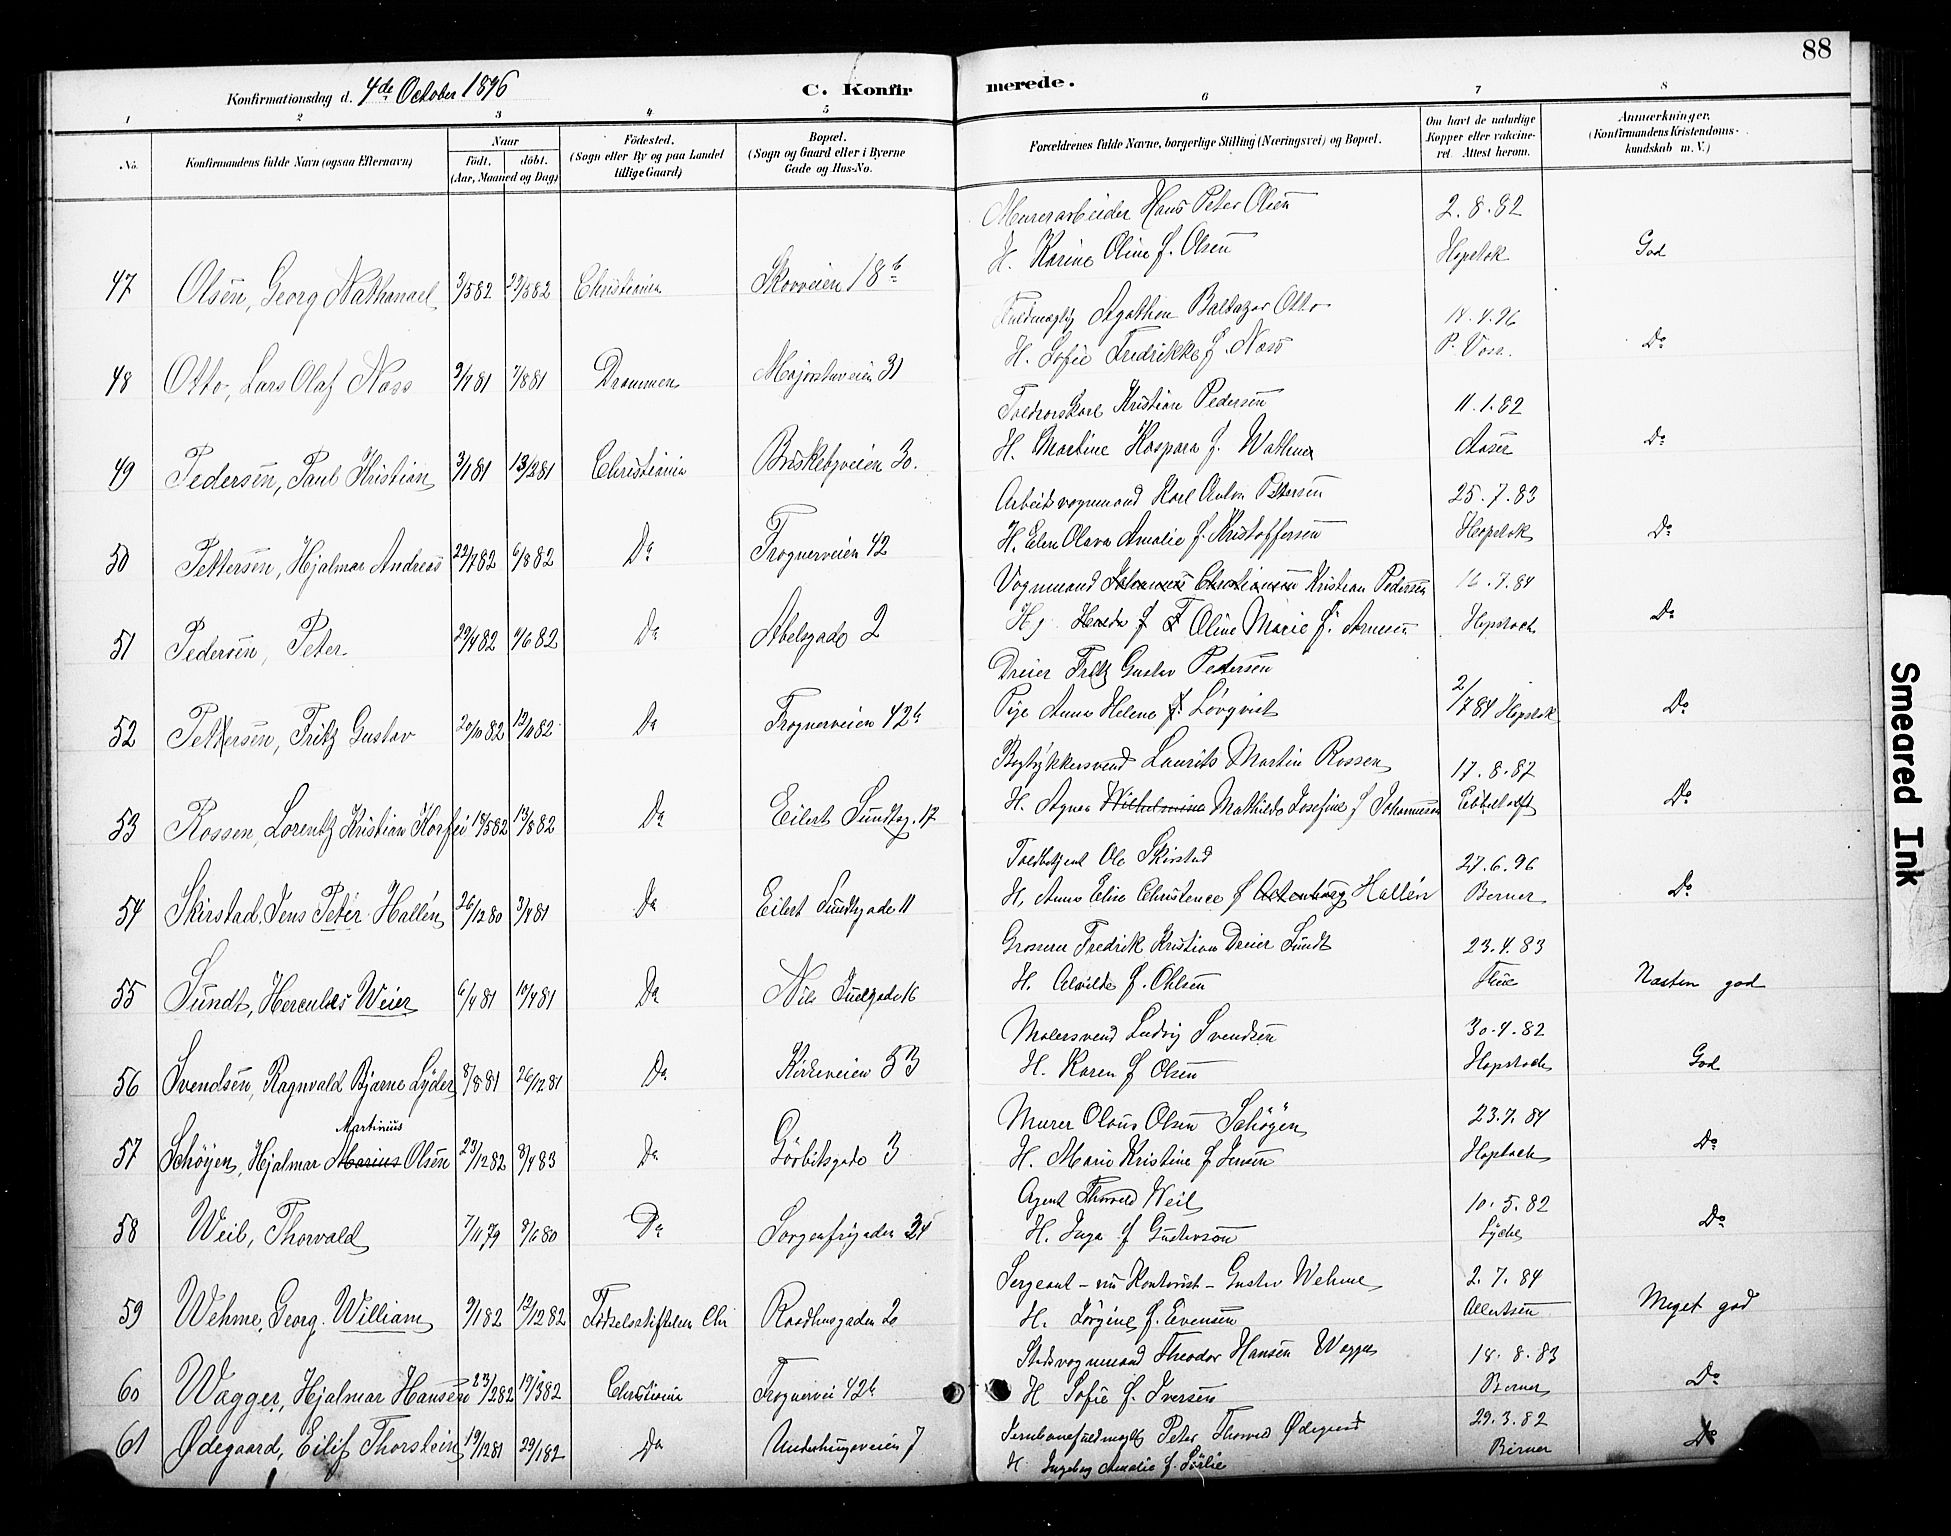 88
Konfirmationsdag d. 4de October 1896
C. Konfirmerede.
1 2 3 4 5 6 7 8
No. Konfirmandens fulde Navn (ogsaa Efternavn) Naar født, døbt. (Aar, Maaned og Dag) Fødested. (Sogn eller By og paa Landet tillige Gaard) Bopæl. (Sogn og Gaard eller i Byerne Gade og Hus-No. Forældrenes fulde Navne, borgerlige Stilling (Næringsvei) og Bopæl. Om havt de naturlige Kopper eller vakcineret. Attest herom. Anmærkninger. (Konfirmandens Kristendomskundskab m. V.)
Murerarbeider Hans Peter Olsen 2.8.82
H. Karine Oline f. Olsen Hopstok God
47 Olsen, Georg Nathanael 3/5 82 Christiania Skovveien 18 b
Fuldmægtig Agathon Baltazar Otto 14.4.96
H. Sofie Fredrikke f. Næss P. Voss. Do
48 Otto, Lars Olaf Næss 7/8 81 Drammen Majorstuveien 31
Kristian Pedersen 11.1.82
H. Martine Kaspara f. Wathner Aaser Do
49 Pedersen, Paul Kristian 3/1 81 13/2 81 Christiania Briskebyveien 30.
Arbeidsvognmand Karl Anton Pettersen 25.7.83
H. Elen Olava Amalie f. Kristoffersen Hopstok Do
50 Pettersen, Hjalmar Andreas 22/7 82 6/8 82 Do Frognerveien 42
Vognmand Johannes Christiansen Kristian Pedersen 16.7.84
H. Oline Marie f. Arnesen Hopstock Do
51 Pedersen, Peter 29/4 82 4/6 82 Do Abelsgade 2
Dreier Fritz Gustav Pettersen
Pige Anna Helene f. Løvqvist 2/7 84 Hopstok Do
52 Pettersen, Fritz Gustav 20/10 82 Do Frognerveien 42 b
Bogtrykkersvend Laurits Martin Rossen 17.8.87
H. Agnes Wilhelmine Mathilde Josefine f. Johannesen Ebbeltoft Do
53 Rossen, Lorentz Kristian Korfei 18/5 82 13/8 82 Do Eilert Sundtsg. 17
Toldbetjent Ole Skirstad 27.6.96
H. Anna Elise Christence f Hallén Berner Do
54 Skirstad, Jens Peter Hallén 26/12 80 3/4 81 Do Eilert Sundtsgade 11
Grosserer Fredrik Kristian Dreier Sundt 23.4.83
H. Alvilde f. Ohlsen Thue Næsten god
55 Sundt, Hercules Weier 6/4 81 Do Nils Juelsgade 16
Malersvend Ludvig Svendsen 30.4.82
H. Karen f Olsen Hopstock God
56 Svendsen, Ragnvald Bjarne Lyder 8/8 81 26/12 81 Do Kirkeveien 53
Murer Olaus Olsen Schøyen 23.7.84
H. Marie Kristine f Jensen Hopstock Do
Martinius
57 Schøyen, Hjalmar Marius Olsen 23/12 82 8/4 83 Do Gørbitsgade 3
Agent Thorvald Weil 10.5.82
H. Inga f Gustavson Lyche Do
58 Weil, Thorvald 7/11 79 Do Sorgenfrigaden 34
Sergeant - nu Kontorist - Gustav Wehme 2.7.84
H. Jørgine f. Evensen Albertsen Meget god
59 Wehme, Georg William 9/1 82 12/12 82 Fødselsstiftelsen Chr Raadhusgaden 20
Vognmand Theodor Hansen Wagger 18.8.83
H Sofie f. Iversen Berner Do
60 Wagger, Hjalmar Hansen 23/2 82 19/3 82 Christiania Frognervei 42 b
Jernbanefuldmægtig Peter Thorvald Ødegaard 29.3.82
61 Ødegaard, Eilif Thorstein 19/12 81 29/1 82 Do Underhaugsveien 7 Berner Do
H Ingeborg Amalie f. Sørlie
Smeared Ink